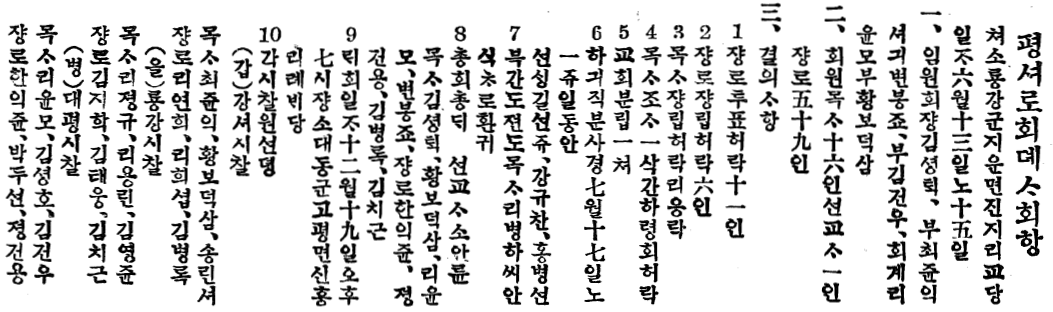 평셔로회뎨八회항
쳐소룡강군지운면진지리교당
일ᄌ六월十三일노十五일
一、임원회쟝김셩탁、부최쥰의
셔긔변봉죠、부김건우、회계리
윤모부황보덕삼
二、회원목ᄉ十六인션교ᄉ一인
쟝로五十九인
三、결의ᄉ항
1 쟝로투표허락十一인
2 쟝로쟝립허락六인
3 목ᄉ쟝립허락리응락
4 목ᄉ조ᄉ一삭간하령회허락
5 교회분립一쳐
6 하긔직분사경七월十七일노
一쥬일동안
션싱길션쥬、강규찬、홍병션
7 북간도젼도목ᄉ리병하씨안
식ᄎ로환귀
8 총회총ᄃᆡ 션교ᄉ소안륜
목ᄉ김셩탁、황보덕삼、리윤
모、변봉죠、쟝로한의쥰、졍
건용、김병록、김치근
9 ᄅᆡ회일ᄌ十二월十九일오후
七시쟝소대동군고평면신흥
리례비당
10 각시찰원션뎡
(갑)강셔시찰
목ᄉ최쥰의、황보덕삼、송린셔
쟝로리연희、리희셥、김병록
(을)룡강시찰
목ᄉ리졍규、리용린、김영쥰
쟝로김지학、김태웅、김치근
(병)대평시찰
목ᄉ리윤모、김셩호、김건우
쟝로한의쥰、박두션、졍건용